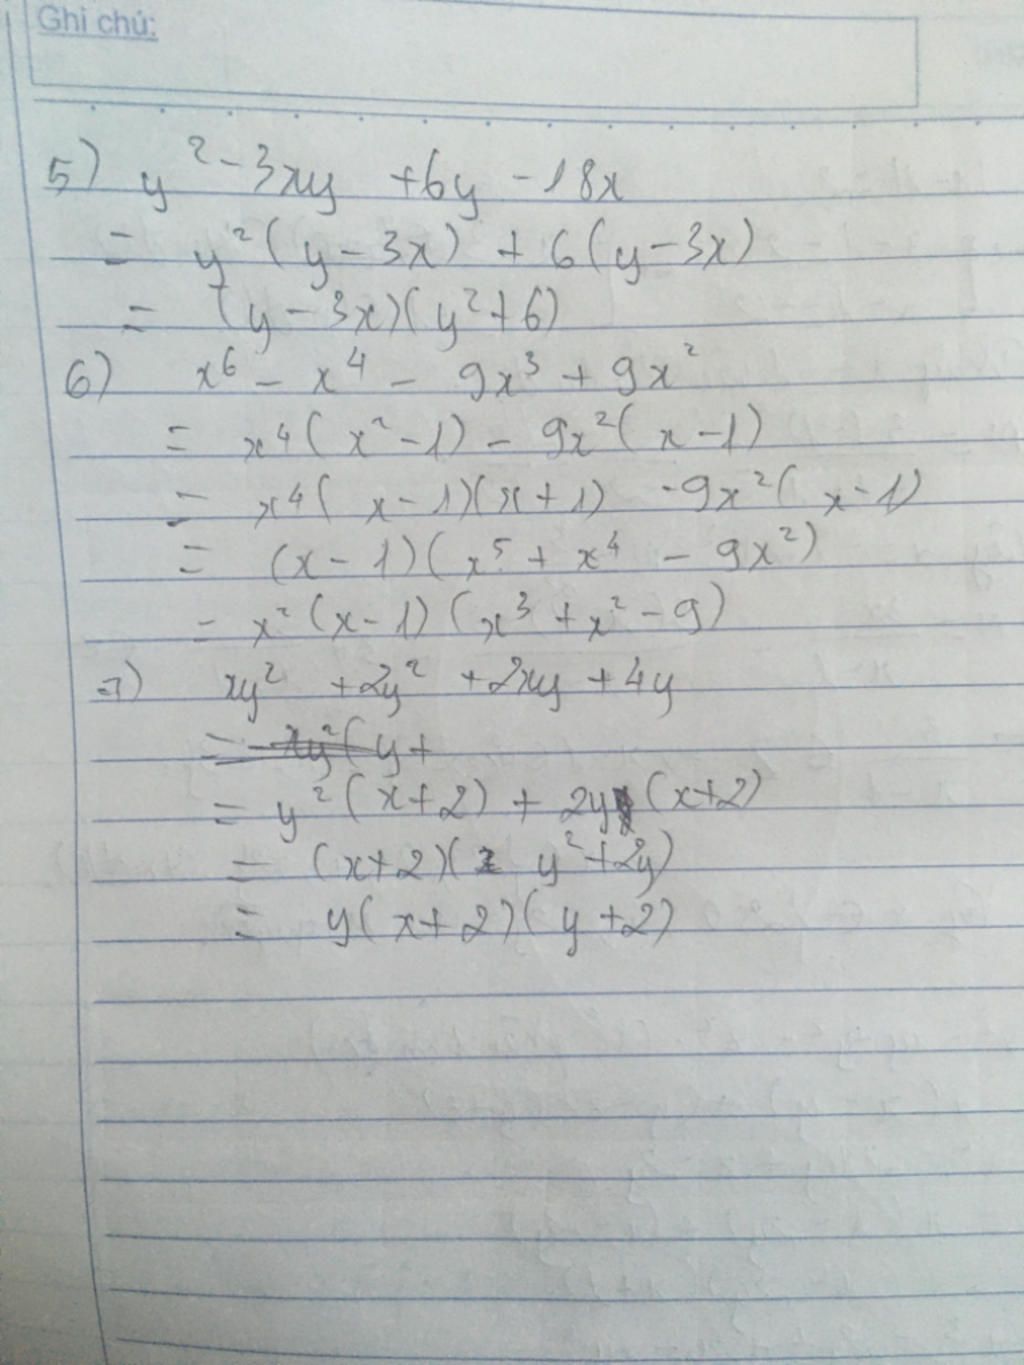 Ghi chú:
5) y² - 3xy + 6y - 18x
= y²(y - 3x) + 6(y - 3x)
= (y - 3x)(y² + 6)
6) x⁶ - x⁴ - 9x³ + 9x²
= x⁴(x² - 1) - 9x²(x - 1)
= x⁴(x - 1)(x + 1) - 9x²(x - 1)
= (x - 1)(x⁵ + x⁴ - 9x²)
= x²(x - 1)(x³ + x² - 9)
7) xy² + 2y² + 2xy + 4y
= xy²(y +
= y²(x + 2) + 2y(x + 2)
= (x + 2)(y² + 2y)
= y(x + 2)(y + 2)